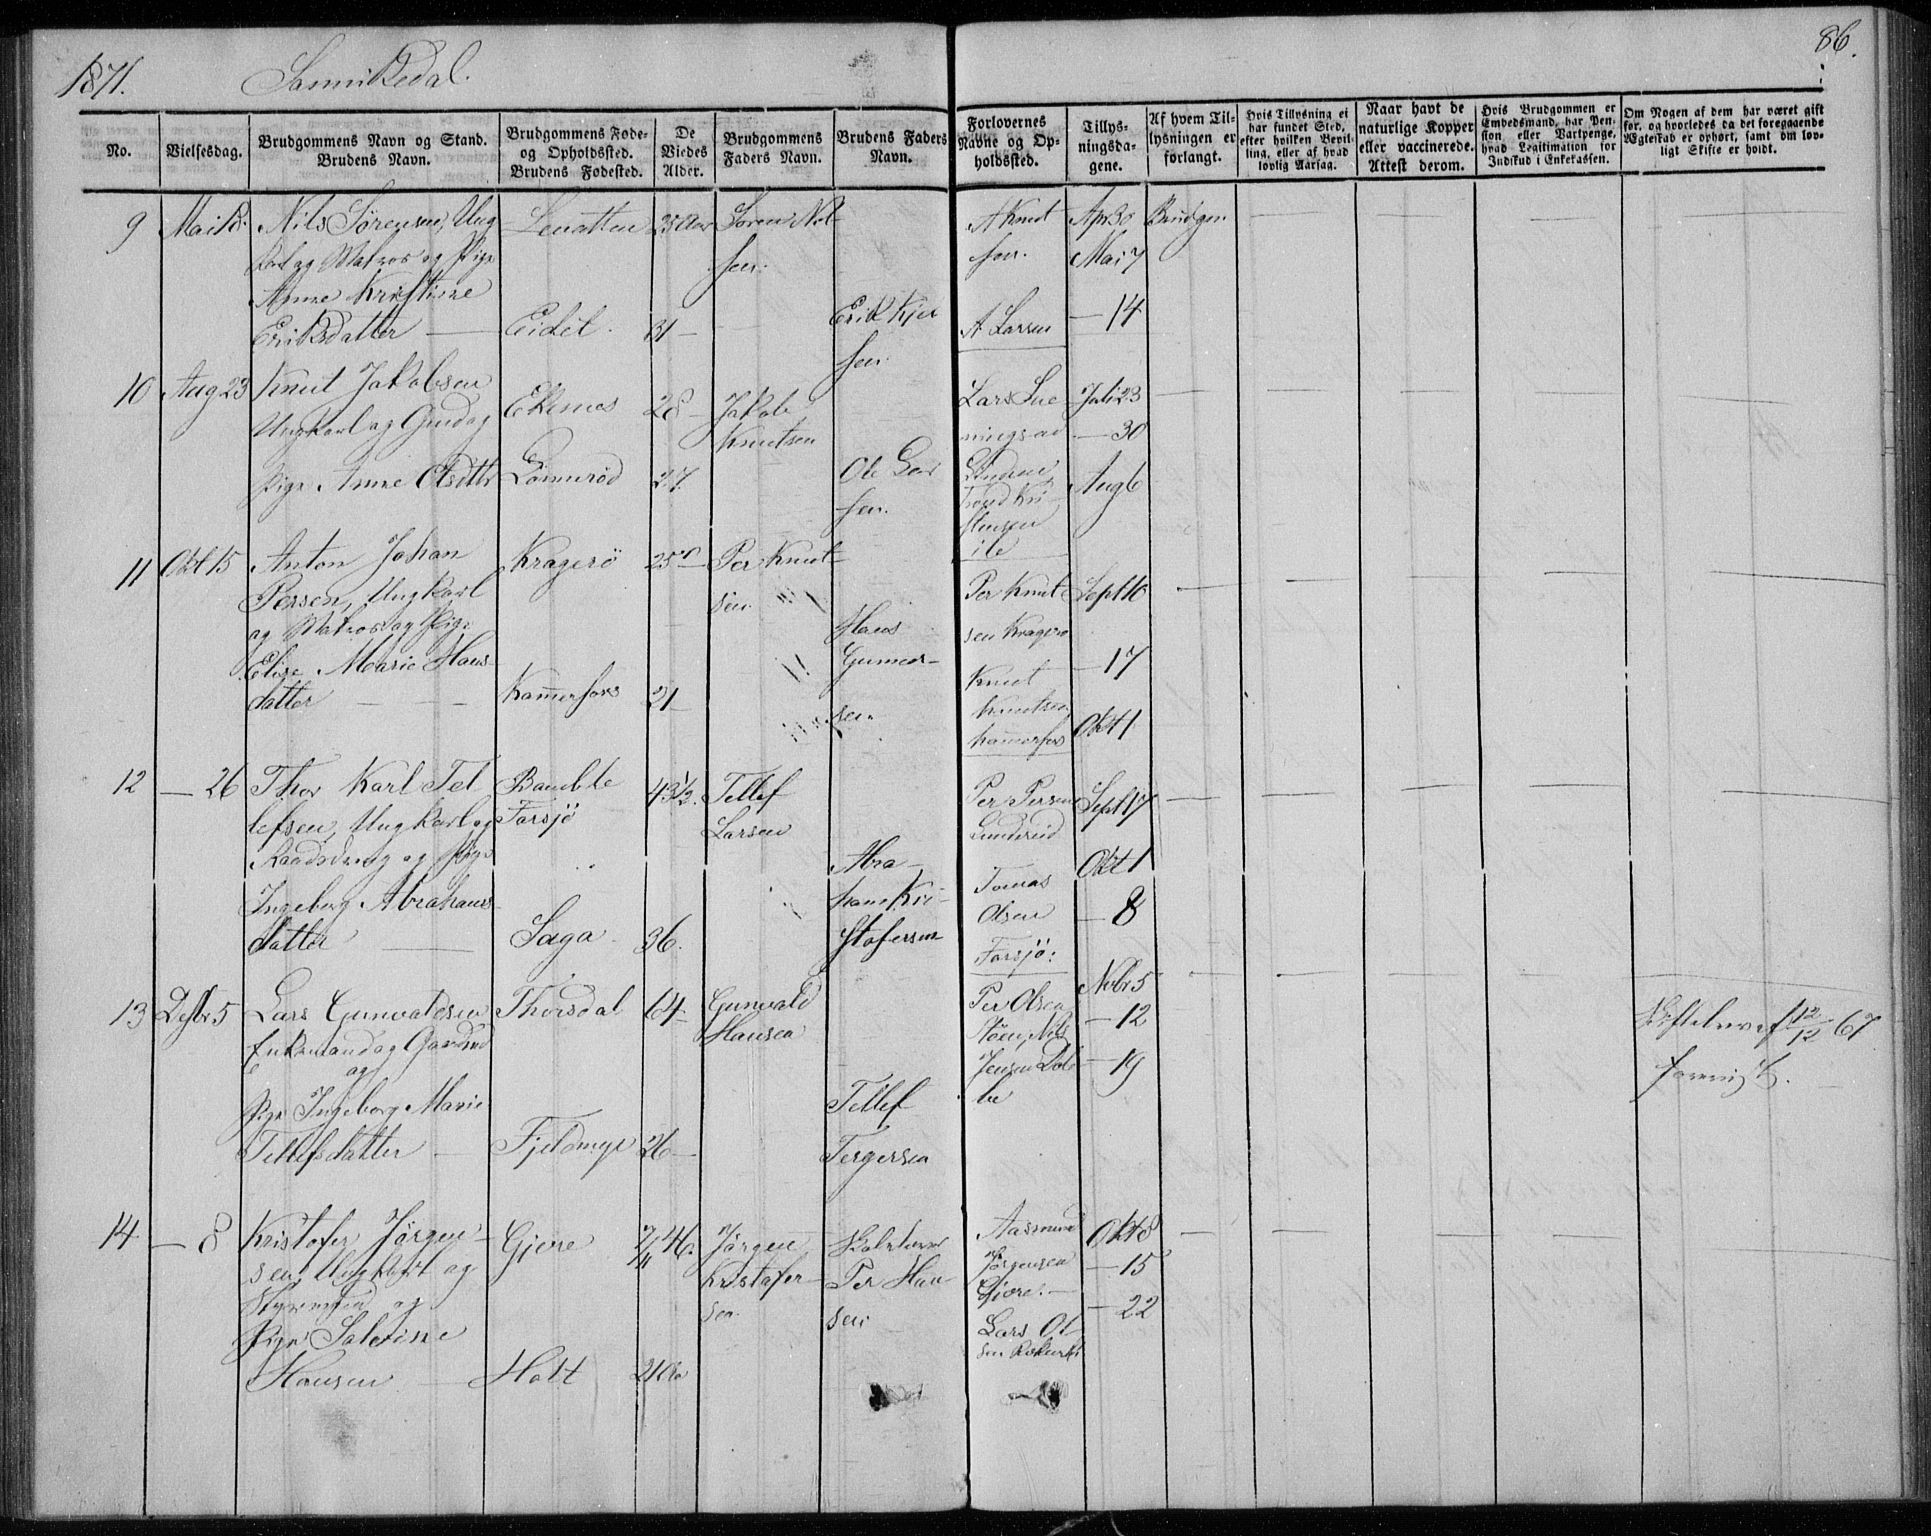 1871.
Sannikedal.
86.
No.
Vielsesdag.
Brudgommens Navn og Stand.
Brudens Navn.
Brudgommens Føde-
og Opholdssted.
Brudens Fødested.
De
Viedes
Alder.
Brudgommens
Faders Navn.
Brudens Faders
Navn.
Forlovernes
Navne og Op-
holdssted.
Tillys-
ningsda-
gene.
Af hvem Til-
lysningen er
forlangt.
Hvis Tillysning ei
har fundet Sted,
efter hvilken Bevil-
ling, eller af hvad
lovlig Aarsag.
Naar havt de
naturlige Kopper
eller vaccinerede.
Attest derom.
Hvis Brudgommen er
Embedsmand, har Pen-
sion eller Vartpenge,
hvad Legitimation for
Indskud i Enkekassen.
Om Nogen af dem har været gift
før, og hvorledes da det foregaaende
Ægteskab er ophørt, samt om lov-
ligt Skifte er holdt.
9
Nils Sørensen, Ung
karl og Matros og Pige
Anne Kristine
Eriksdatter
Eidet.
35 Aar
31
Søren Nil-
sen.
Erik Kjer
sen.
A Knut
sen.
A Larsen
Apr 30
Mai 7
— 14
Brudgom
10
Aug 23
Knut Jakobsen
Ungkarl og Grdag
Pige Anne Olsdttr
Ekenes
Lønnerød
28
27.
Jakob
Knutsen
Ole Lar
sen.
Lars
Trond Kri
stensen
ile
Juli 23
— 30
Aug 6
11
Okt 15
Anton Johan
Persen, Ungkarl
og Matros og Pige
Elise Marie Hans
datter
Kragerø
Kammerfors
25
21
Per Knut-
sen
Hans
Gunnar-
sen.
Per Knut
sen Kragerø
Knut
Knutsen
Kammerfos
Sept 10
— 17
Okt 1
12
— 26
Thor Karl Tel
lefsen, Ungkarl og
Raadsdreng og Pige
Ingeborg Abrahams
datter
Bamble
Farsjø
Saga
43 1/2.
36.
Tellef
Larsen
Abra-
ham Kri-
stofersen
Per Persen
Lundereid
Tomas
Olsen
Farsjø:
Sept 17
Okt 1
— 8
13
Desbr 5
Lars Gunvaldsen
Enkemand og Gaardmd
og
Pige Ingeborg Marie
Tellefsdatter
Thorsdal
Fjeldmyr
64
26
Gunvald
Hansen
Tellef
Tergersen
Per Olsen
Støen, Nils
Jensen Dob-
be
Nvbr 5
— 12
— 19
Skiftebrev af 12/12 67
14
— 8
Kristofer Jørgen-
sen, Ungkarl og
Styrmand og
Pige Salvine
Hansen
Gjerre
Holt
46.
21 Aar
Jørgen
Kristofer-
sen.
Skolelærer
Per Han
sen.
Aasmund
Jørgensen
Gjerre.
Lars Ol
sen
Okt 8
— 15
— 22